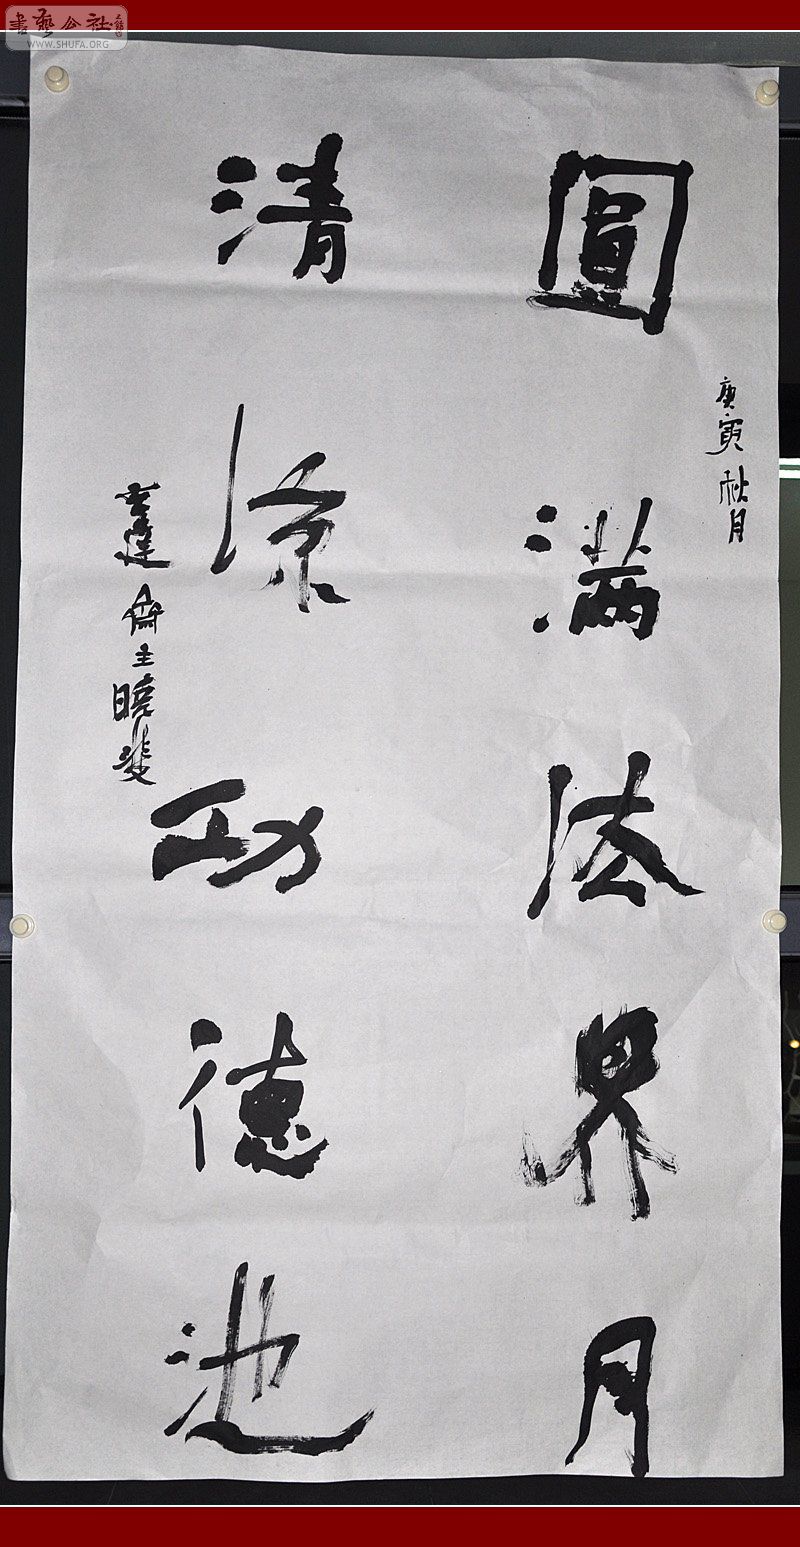 書藝公社
WWW.SHUFA.ORG
圓滿法界月
庚寅秋月
清涼功德池
齋主曉斐